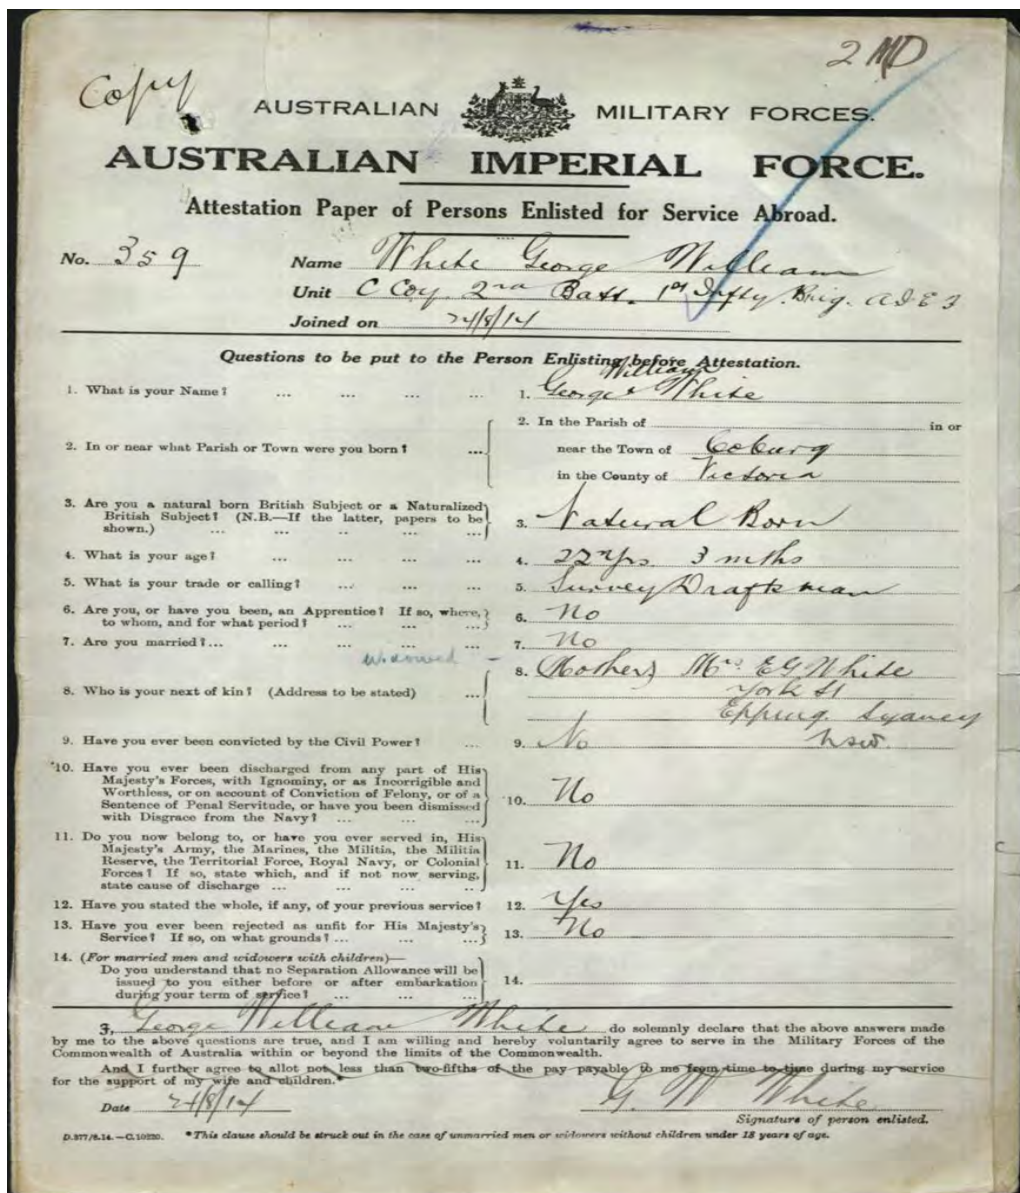 2 MD
Copy
AUSTRALIAN MILITARY FORCES.
AUSTRALIAN IMPERIAL FORCE.
Attestation Paper of Persons Enlisted for Service Abroad.
No. 359 Name White George William
Unit C Coy. 2nd Batt. 1st Infty. Brig. A.I.E.F
Joined on 24/8/14
Questions to be put to the Person Enlisting before Attestation.
William
1. What is your Name? ... ... ... ... 1. George White
2. In the Parish of in or
2. In or near what Parish or Town were you born? ... near the Town of Coburg
in the County of Victoria
3. Are you a natural born British Subject or a Naturalized
British Subject? (N.B.—If the latter, papers to be 3. Natural Born
shown.) ... ... .. ... ...
4. What is your age? ... ... ... ... 4. 22 yrs 3 mths
5. What is your trade or calling? ... ... ... 5. Survey Draftsman
6. Are you, or have you been, an Apprentice? If so, where, 6. No
to whom, and for what period? ... ... ...
7. Are you married?... ... ... ... 7. No
widowed – 8. (Mother) Mrs. E G White
York St
8. Who is your next of kin? (Address to be stated) ...
Epping. Sydney
9. Have you ever been convicted by the Civil Power? ... 9. No NSW.
*10. Have you ever been discharged from any part of His
Majesty's Forces, with Ignominy, or as Incorrigible and
Worthless, or on account of Conviction of Felony, or of a *10. No
Sentence of Penal Servitude, or have you been dismissed
with Disgrace from the Navy? ... ... ...
11. Do you now belong to, or have you ever served in, His
Majesty's Army, the Marines, the Militia, the Militia
Reserve, the Territorial Force, Royal Navy, or Colonial 11. No
Forces? If so, state which, and if not now serving,
state cause of discharge ... ... ... ..
12. Have you stated the whole, if any, of your previous service? 12. Yes
13. Have you ever been rejected as unfit for His Majesty's 13. No
Service? If so, on what grounds? ... ... ...
14. (For married men and widowers with children)—
Do you understand that no Separation Allowance will be
issued to you either before or after embarkation 14.
during your term of service? ... ... ...
I, George William White do solemnly declare that the above answers made
by me to the above questions are true, and I am willing and hereby voluntarily agree to serve in the Military Forces of the
Commonwealth of Australia within or beyond the limits of the Commonwealth.
And I further agree to allot not less than two-fifths of the pay payable to me from time to time during my service
for the support of my wife and children.*
Date 24/8/14 G. W White
Signature of person enlisted.
D.377/8.14.—C.10220. *This clause should be struck out in the case of unmarried men or widowers without children under 18 years of age.